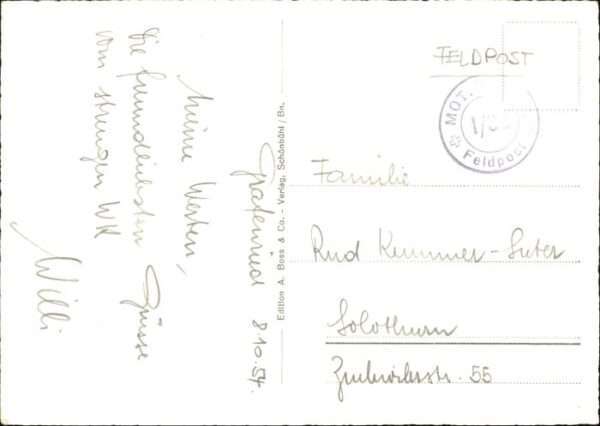 Grafenried 8.10.54.
Meine Werten,
die freundlichsten Grüsse
vom strengen WK
Willi
Edition A. Boss & Co. - Verlag, Schönbühl / Bn.
FELDPOST
MOT.
Feldpost
Familie
Rud Kummer-Suter
Solothurn
55